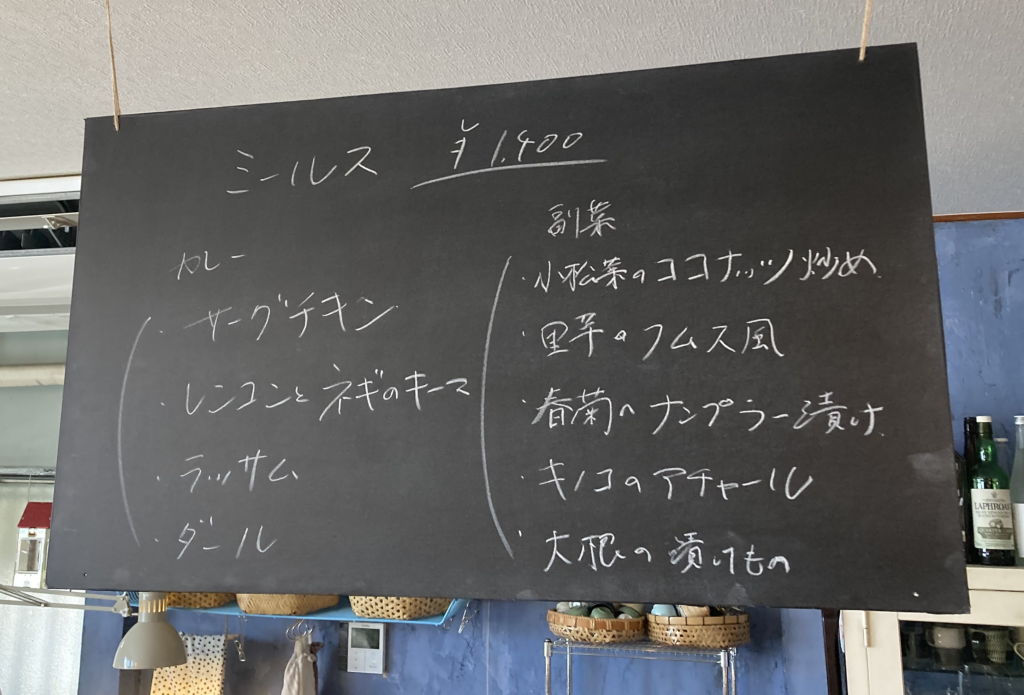 ミールス ¥1,400
カレー
・サーグチキン
・レンコンとネギのキーマ
・ラッサム
・ダール
副菜
・小松菜のココナッツ炒め
・里芋のフムス風
・春菊のナンプラー漬け
・キノコのアチャール
・大根の漬けもの
LAPHROAIG